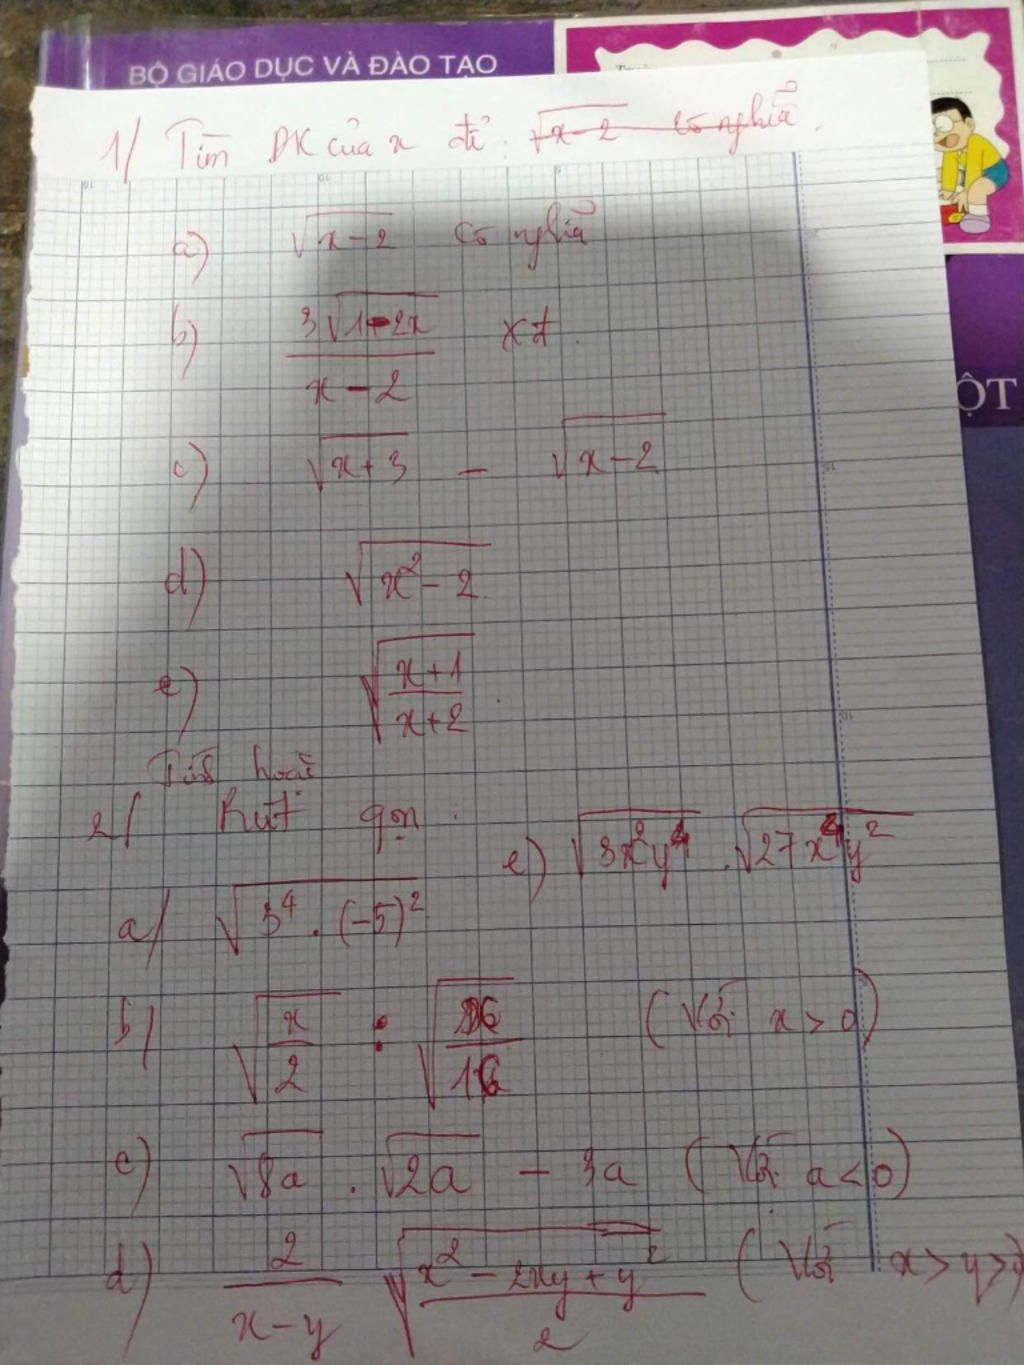 BỘ GIÁO DỤC VÀ ĐÀO TẠO
1/ Tìm ĐK của x để: √(x-2) có nghĩa.
a) √(x-2) có nghĩa
b) 3√(1-2x) / (x-2) xđ.
c) √(x+3) - √(x-2)
d) √(x²-2)
e) √((x+1)/(x+2)).
ỘT
Tính hoặc
2/ Rút gọn:
e) √(3x²y⁴) . √(27x⁴y²)
a/ √(3⁴ . (-5)²)
b/ √(x/2) : √(/16) (Với x > 0)
c) √(8a) . √(2a) - 3a (Với a < 0)
d) 2/(x-y) √((x²-2xy+y²)/2) (Với x > y >